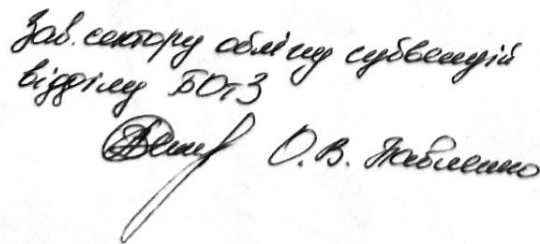 Зав. сектору обліку субвенцій
відділу БОтЗ
О. В. Павленко